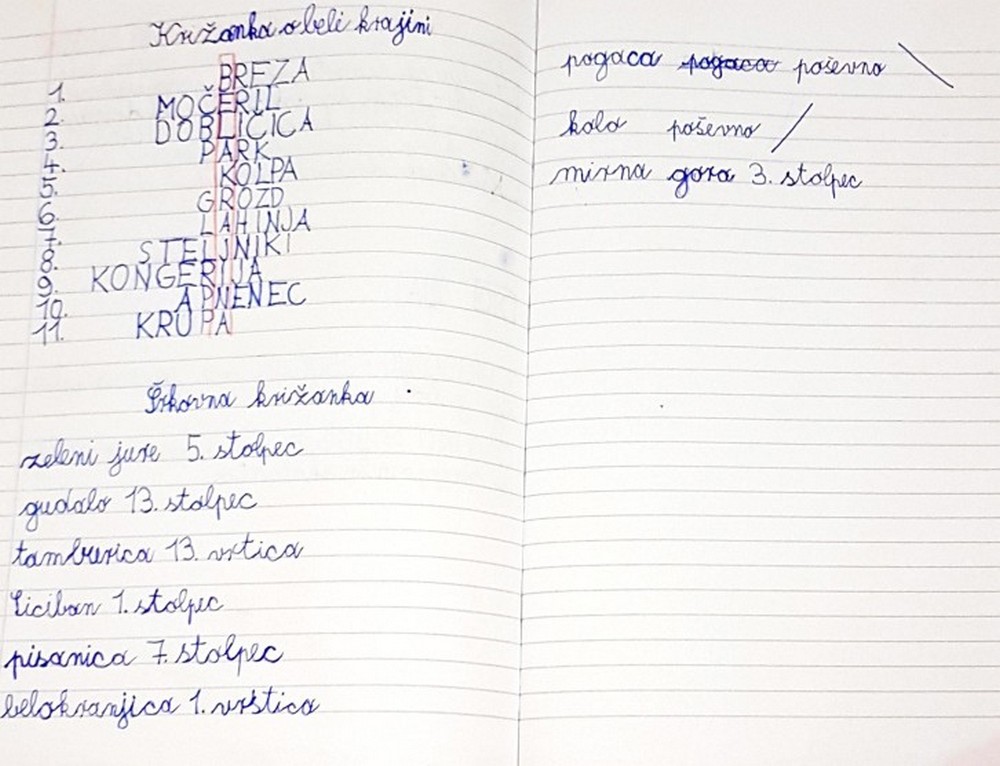 Križanka o beli krajini
1. BREZA
2. MOČERIL
3. DOBLIČICA
4. PARK
5. KOLPA
6. GROZD
7. LAHINJA
8. STELJNIKI
9. KONGERIJA
10. APNENEC
11. KRUPA
Črkovna križanka
zeleni jure 5. stolpec
gudalo 13. stolpec
tamburica 13. vrtica
Ciciban 1. stolpec
pisanica 7. stolpec
belokranjica 1. vrstica
pogaca pogaca poševno \
kolo poševno /
mirna gora 3. stolpec